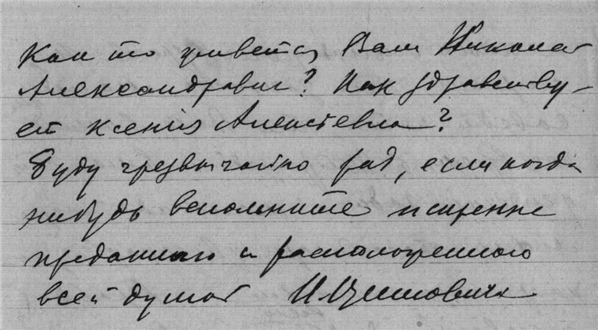 Как то живется Вам Николай
Александрович? Как здравству-
ет Ксения Алексеевна?
Буду чрезвычайно рад, если когда
нибудь вспомните искренне
преданного и расположенного
всей душой